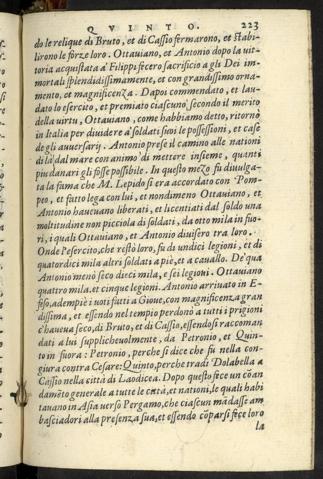 QVINTO. 223
do le relique di Bruto, et di Cassio fermarono, et stabi-
lirono le forze loro. Ottauiano, et Antonio dopo la uit-
toria acquistata á Filippi fecero sacrificio a gli Dei im-
mortali splendidissimamente, et con grandissimo orna-
mento, et magnificenza. Dapoi commendato, et lau-
dato lo esercito, et premiato ciascuno secondo il merito
della uirtu, Ottauiano, come habbiamo detto, ritornò
in Italia per diuidere á soldati suoi le possessioni, et case
de gli auuersarij. Antonio prese il camino alle nationi
di là dal mare con animo di mettere insieme, quanti
piu danari gli fosse possibile. In questo mezo fu diuulga-
ta la fama che M. Lepido si era accordato con Pom-
peo, et fatto lega con lui, et nondimeno Ottauiano, et
Antonio haueuano liberati, et licentiati dal soldo una
moltitudine non picciola di soldati, da otto mila in fuo-
ri, i quali Ottauiano, et Antonio diuisero tra loro.
Onde l'esercito, che restò loro, fu di undici legioni, et di
quatordici mila altri soldati a piè, et a cauallo. De qua
Antonio menò seco dieci mila, e sei legioni. Ottauiano
quattro mila, et cinque legioni. Antonio arriuato in E-
feso, adempiè i uoti fatti a Gioue, con magnificenza gran
dissima, et essendo nel tempio perdonò a tutti i prigioni
c'haueua seco, di Bruto, et di Cassio, essendosi raccoman
dati a lui supplicheuolmente, da Petronio, et Quin-
to in fuora: Petronio, perche si dice che fu nella con-
giura contra Cesare: Quinto, perche tradì Dolabella a
Cassio nella città di Laodicea. Dopo questo fece un cōan
damēto generale a tutte le città, et nationi, le quali habi
tauano in Asia uerso Pergamo, che ciascun mādasse am
basciadori alla presenza sua, et essendo cōparsi fece loro
la